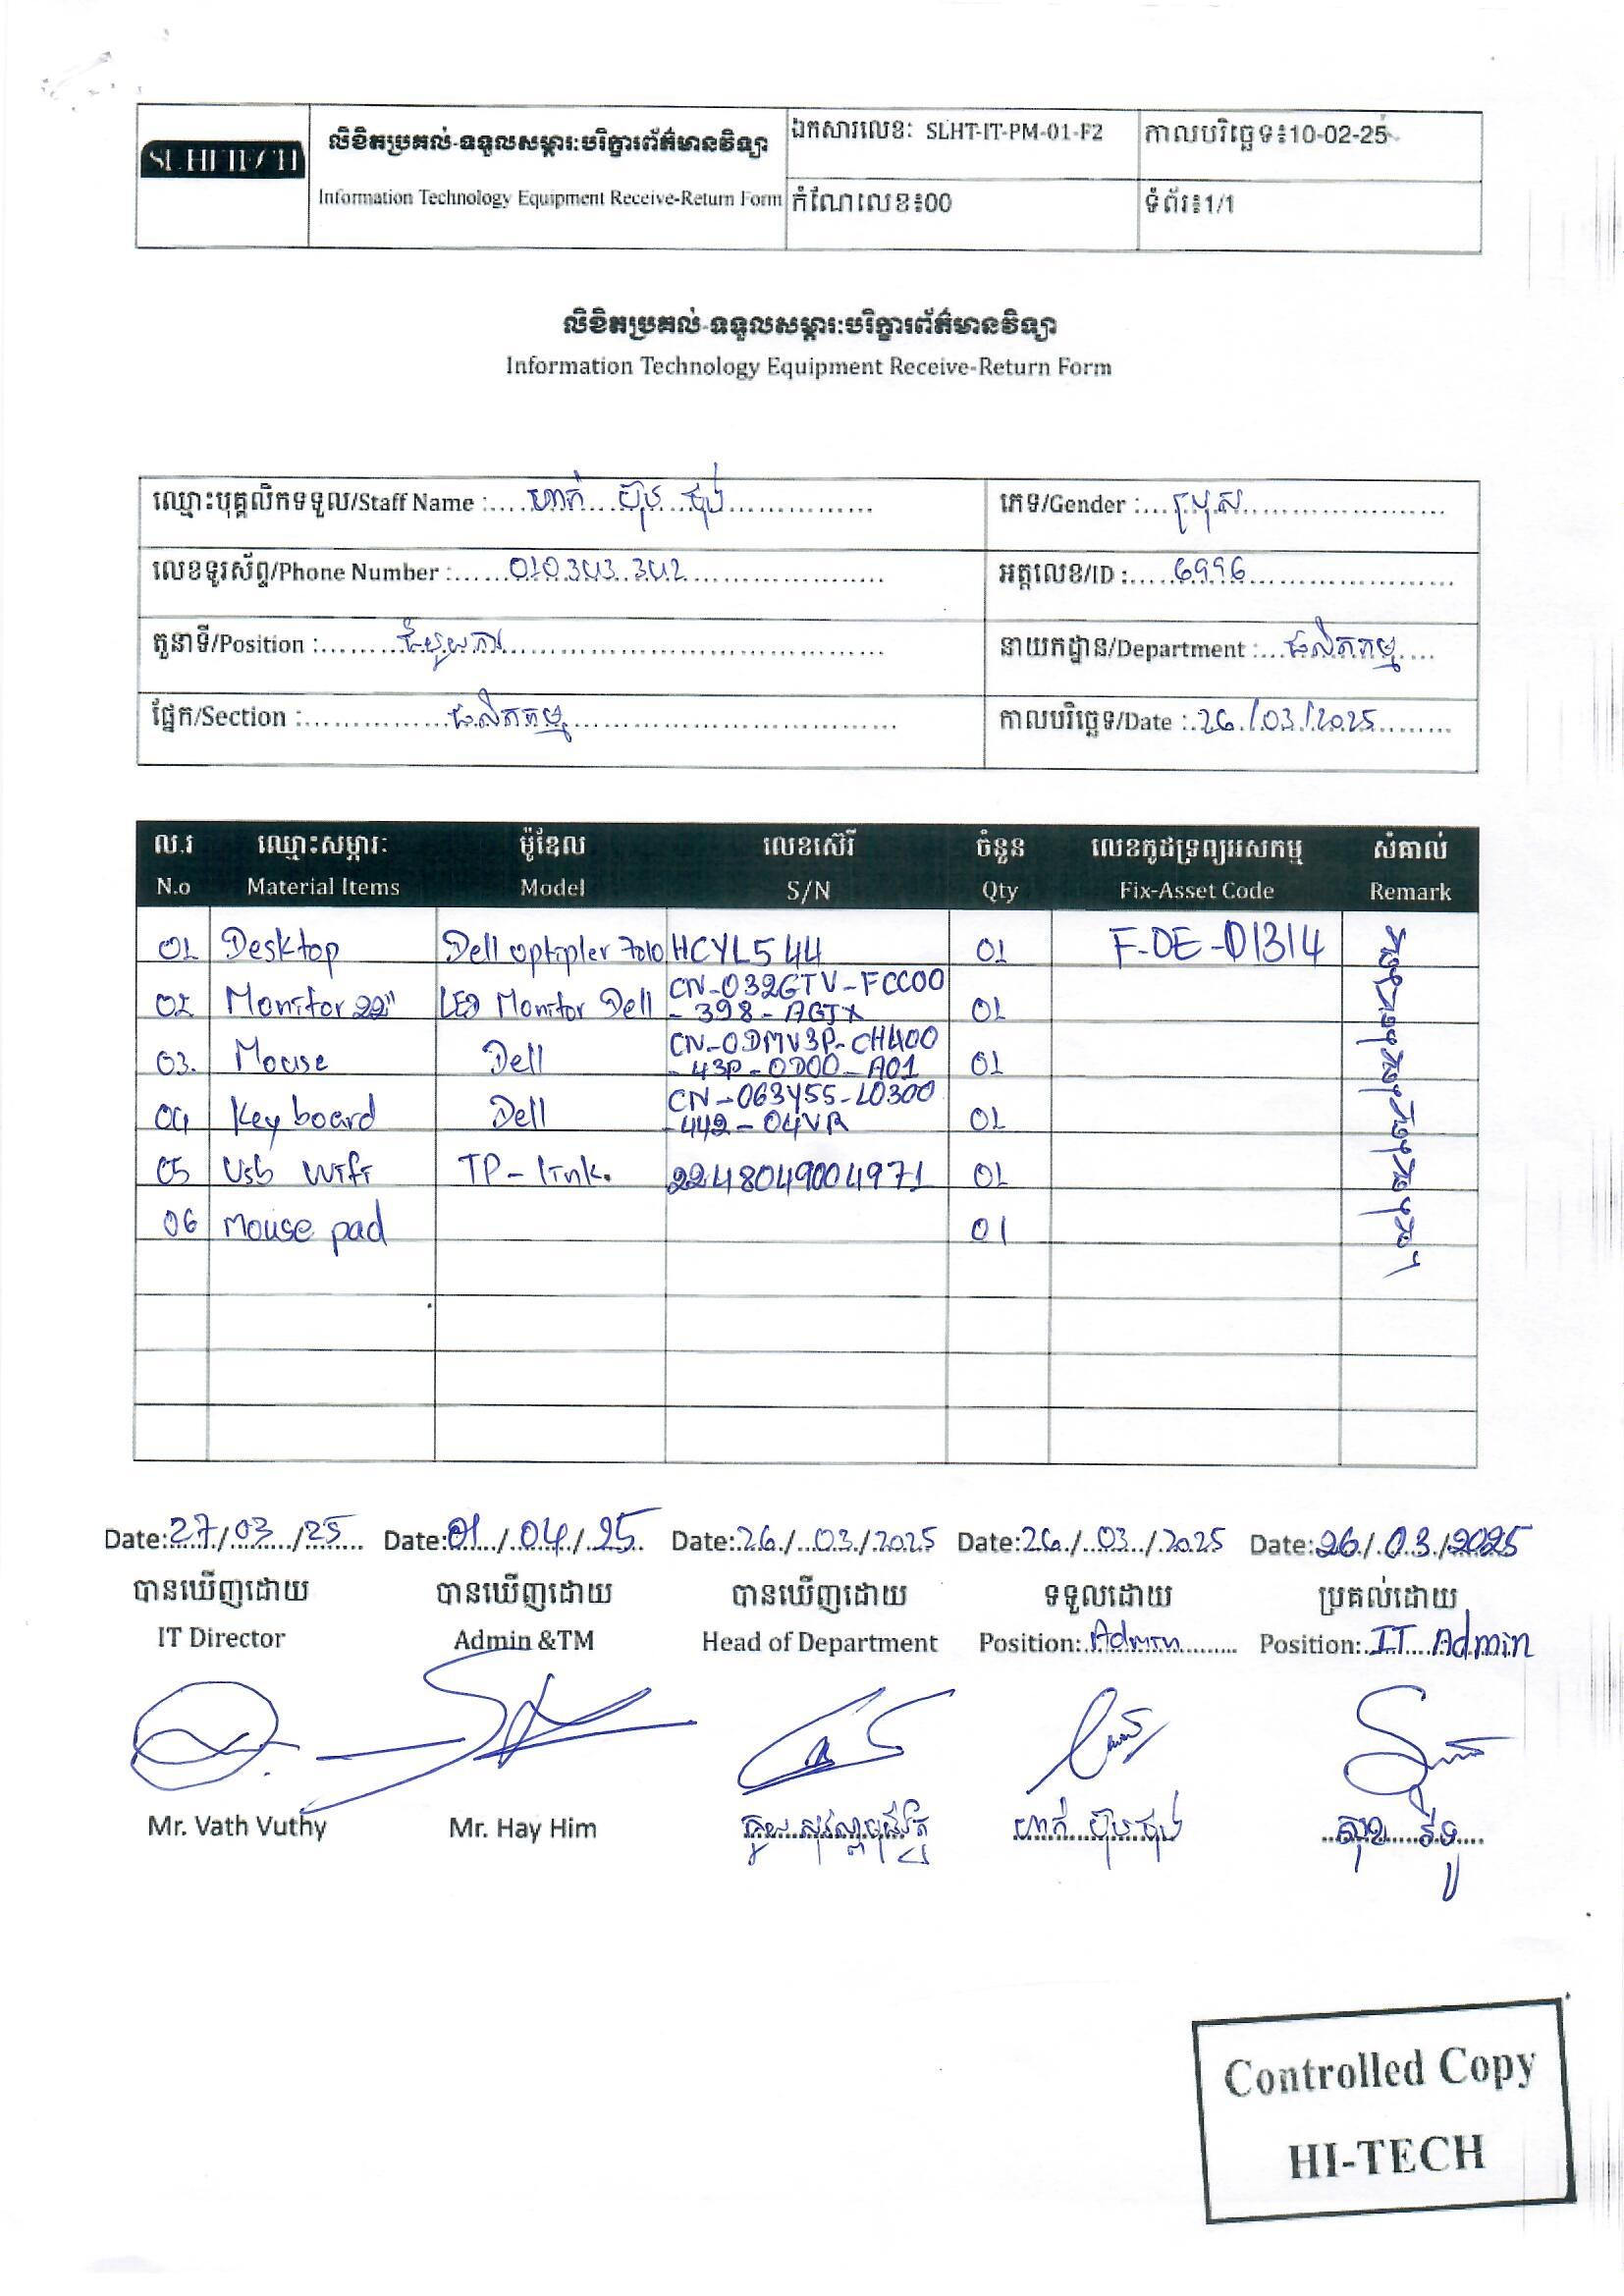 SL HI TECH
លិខិតប្រគល់-ទទួលសម្ភារៈបរិក្ខារព័ត៌មានវិទ្យា
Information Technology Equipment Receive-Return Form
ឯកសារលេខៈ SLHT-IT-PM-01-F2
កាលបរិច្ឆេទ៖10-02-25
កំណែលេខ៖00
ទំព័រ៖1/1
លិខិតប្រគល់-ទទួលសម្ភារៈបរិក្ខារព័ត៌មានវិទ្យា
Information Technology Equipment Receive-Return Form
ឈ្មោះបុគ្គលិកទទួល/Staff Name : ហាក់ ប៊ុន
ភេទ/Gender : ប្រុស
លេខទូរស័ព្ទ/Phone Number : 010 343 342
អត្តលេខ/ID : 6996
តួនាទី/Position : ជំនួយការ
នាយកដ្ឋាន/Department : ផលិតកម្ម
ផ្នែក/Section : ផលិតកម្ម
កាលបរិច្ឆេទ/Date : 26/03/2025
ល.រ ឈ្មោះសម្ភារៈ ម៉ូឌែល លេខស៊េរី ចំនួន លេខកូដទ្រព្យអសកម្ម សំគាល់
N.o Material Items Model S/N Qty Fix-Asset Code Remark
01 Desktop Dell optipler 7010 HCYL544 01 F-DE-01314
02 Monitor 22" LED Monitor Dell CN-032GTV-FCC00
-398-AGJX 01
03. Mouse Dell CN-0DMV3P-CH400
-43P-0D00-A01 01
04 Keyboard Dell CN-063Y55-L0300
-442-04VR 01
05 Usb wifi TP-link. 2248049004971 01
06 Mouse pad 01
Date:27/03/25 Date:01/04/25 Date:26/03/2025 Date:26/03/2025 Date:26/03/2025
បានឃើញដោយ បានឃើញដោយ បានឃើញដោយ ទទួលដោយ ប្រគល់ដោយ
IT Director Admin &TM Head of Department Position: Admin Position: IT Admin
Mr. Vath Vuthy Mr. Hay Him
Controlled Copy
HI-TECH